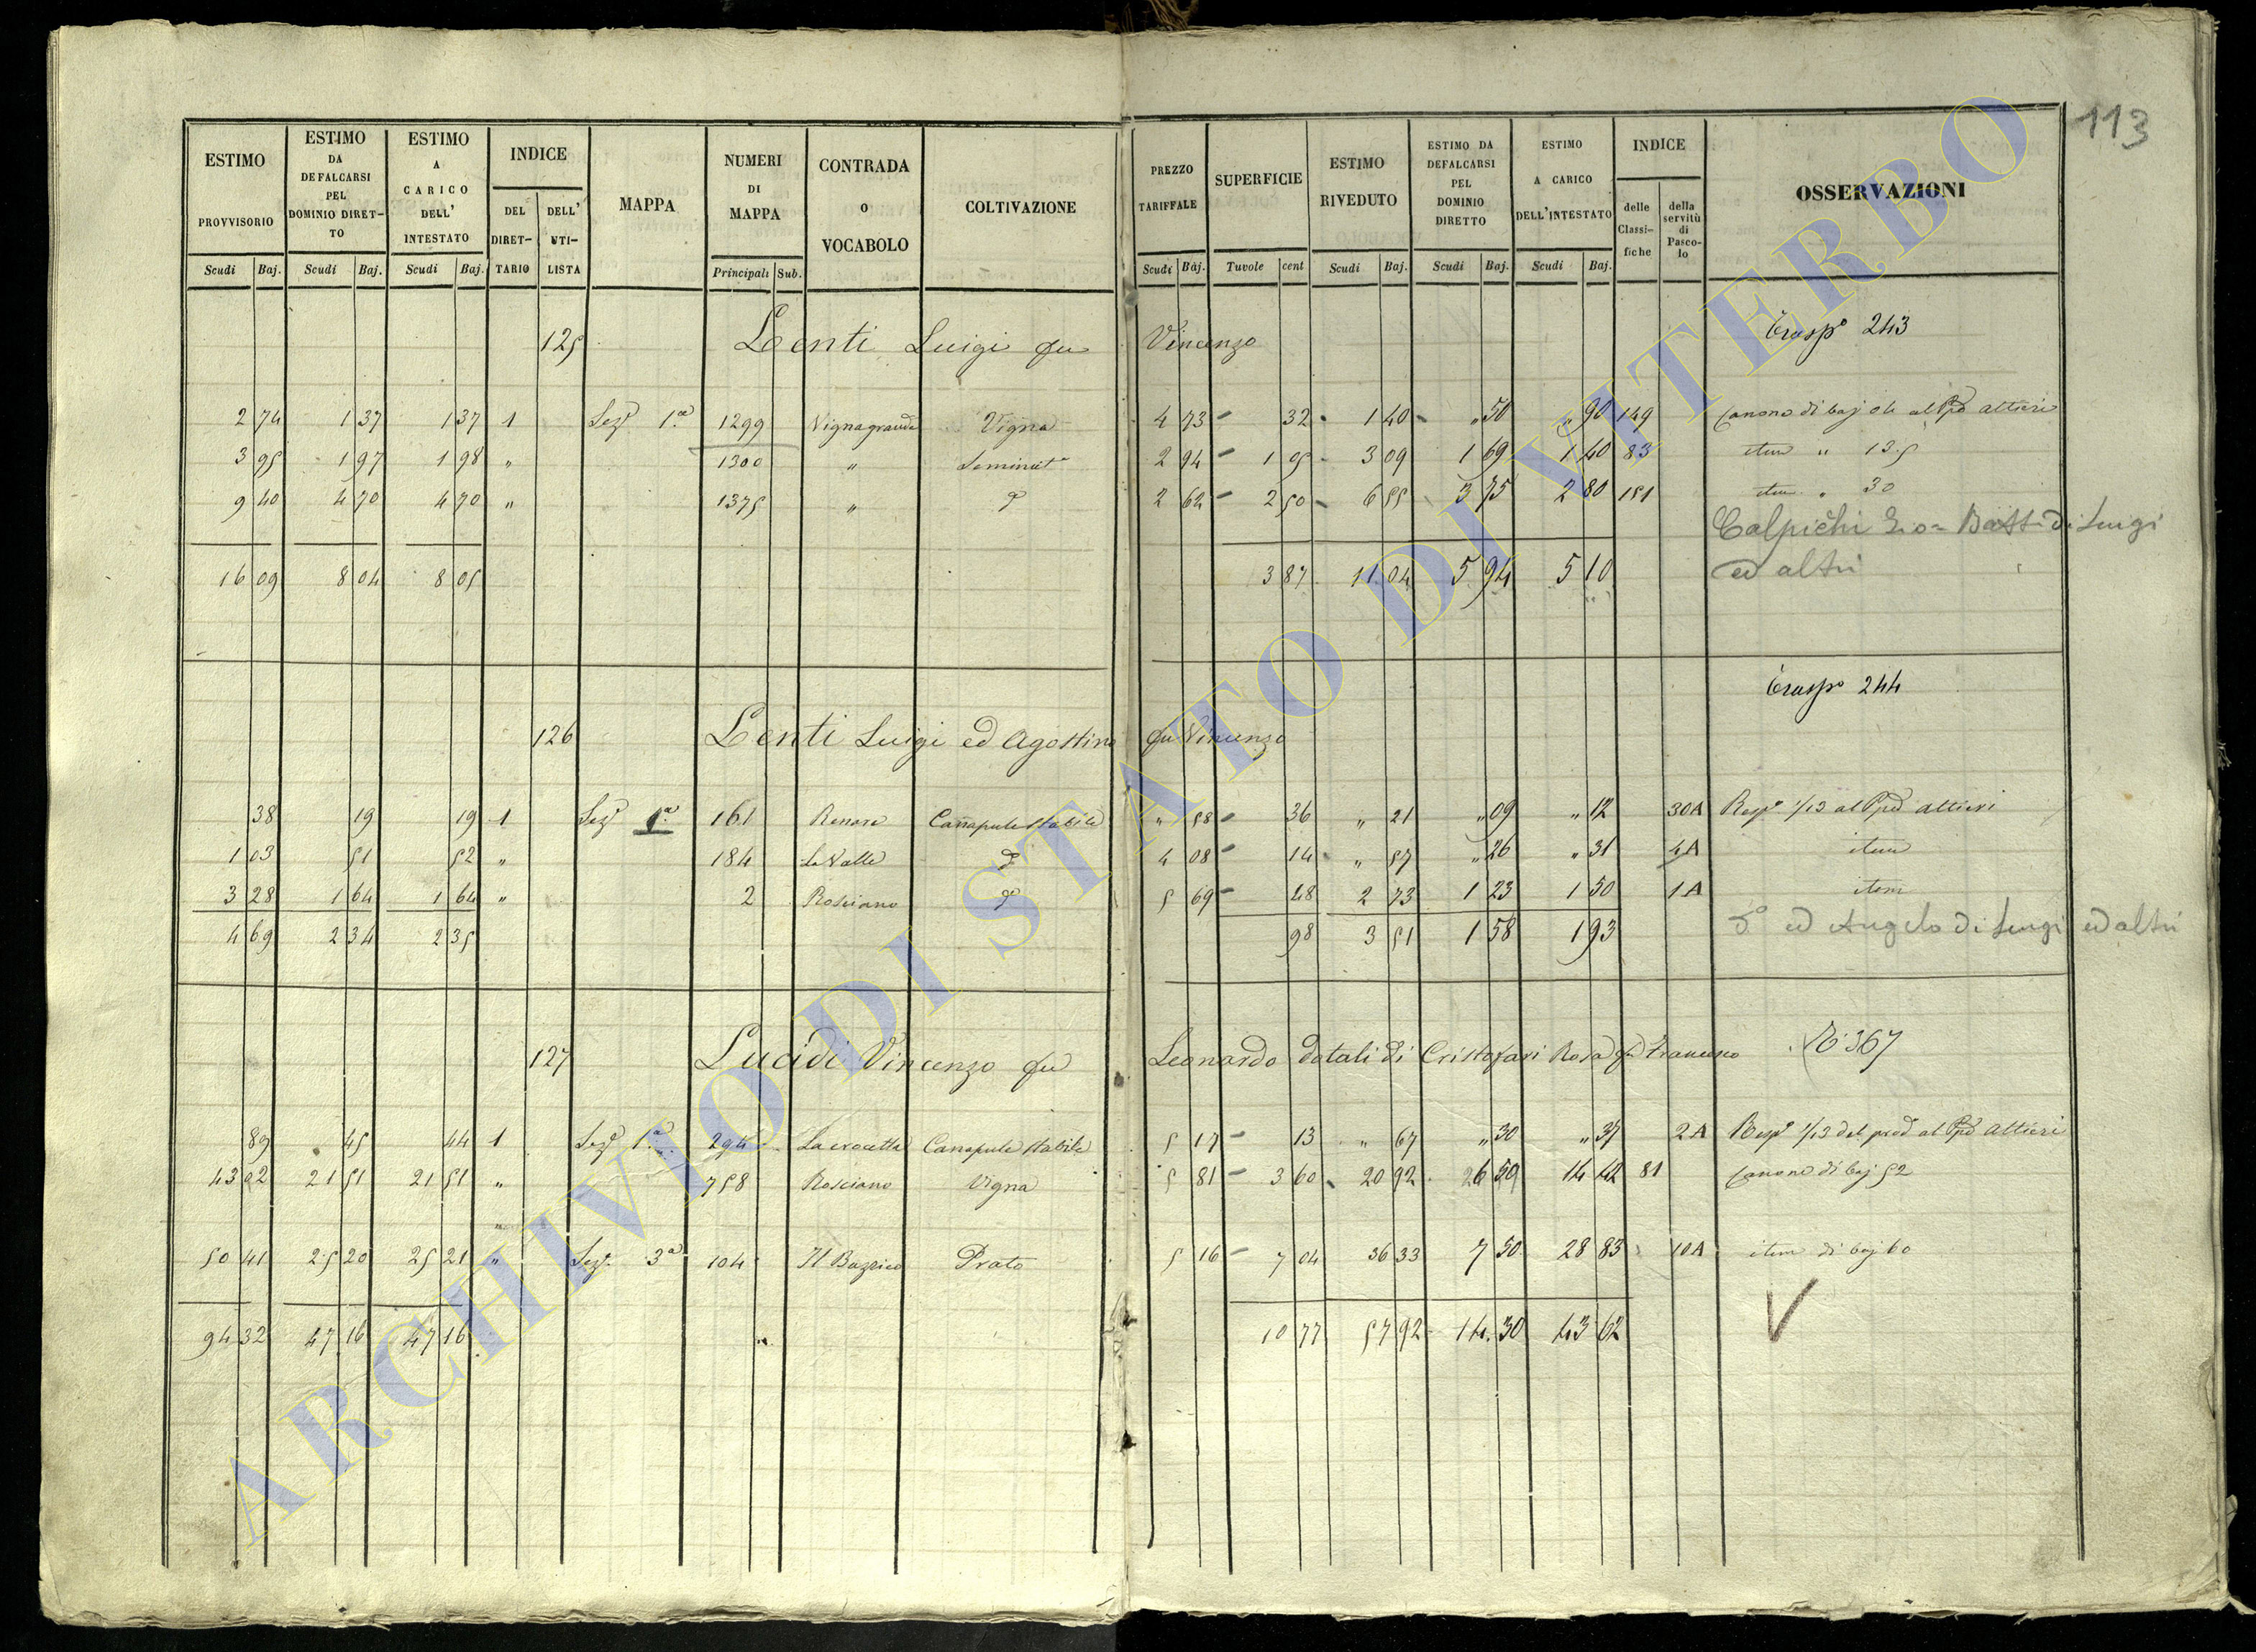 113
ESTIMO PROVVISORIO
ESTIMO DA DEFALCARSI PEL DOMINIO DIRET-TO
ESTIMO A CARICO DELL' INTESTATO
INDICE
DEL DIRET-TARIO
DELL' UTI-LISTA
MAPPA
NUMERI DI MAPPA
CONTRADA O VOCABOLO
COLTIVAZIONE
PREZZO TARIFFALE
SUPERFICIE
ESTIMO RIVEDUTO
ESTIMO DA DEFALCARSI PEL DOMINIO DIRETTO
ESTIMO A CARICO DELL'INTESTATO
INDICE
delle Classi-fiche
della servitù di Pasco-lo
OSSERVAZIONI
Scudi Baj. Scudi Baj. Scudi Baj. Principali Sub. Scudi Baj. Tavole cent Scudi Baj. Scudi Baj. Scudi Baj.
125 Lenti Luigi fu Vincenzo Trasp° 243
2 74 1 37 1 37 1 Sez° 1.a 1299 Vignagrande Vigna 4 73 32 1 40 " 50 " 90 149 Canone di baj 04 al Altieri
3 95 1 97 1 98 " 1300 " Seminat° 2 94 1 05 3 09 1 69 1 40 83 item " 13.5
9 40 4 70 4 70 " 1375 " d° 2 62 2 50 6 55 3 75 2 80 151 item " 30
Calpichi Gio= Batt= di Luigi
ed altri
16 09 8 04 8 05 3 87 11 04 5 94 5 10
Trasp° 244
126 Lenti Luigi ed Agostino fu Vincenzo
38 19 19 1 Sez° 1.a 161 Renare Canapule stabile " 58 36 " 21 " 09 " 12 30A Resp° 1/13 al Altieri
1 03 51 52 " 184 La Valle d° 4 08 14 " 57 " 26 " 31 4A item
3 28 1 64 1 64 " 2 Rosciano d° 5 69 48 2 73 1 23 1 50 1A item
4 69 2 34 2 35 98 3 51 1 58 1 93 d° ed Angelo di Luigi ed altri
127 Lucidi Vincenzo fu Leonardo dotali di Cristofari Rosa fu Francesco 367
89 45 44 1 Sez° 1.a 294 La crocetta Canapule stabile 5 17 13 " 67 " 30 " 37 2A Resp° 1/13 del prod al Altieri
43 02 21 51 21 51 " 758 Rosciano Vigna 5 81 3 60 20 92 26 50 14 42 81 Canone di baj 52
50 41 25 20 25 21 " Sez° 3a 104 Prato 5 16 7 04 36 33 7 50 28 83 10A item di baj 60
94 32 47 16 47 16 10 77 57 92 14.30 43 62
ARCHIVIO DI STATO DI VITERBO